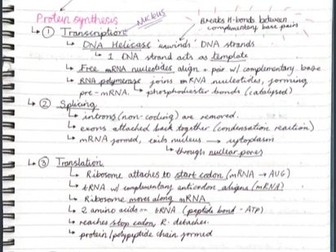 Protein synthesis
NUCLEUS
Breaks H-bonds between
complementary base pairs
① Transcription:
↳ DNA Helicase unwinds DNA strands
↳ 1 DNA strand acts as template
↳ Free mRNA nucleotides align + pair w/ complementary base
↳ RNA polymerase joins mRNA nucleotides, forming
pre-mRNA. ↳ phosphodiester bonds (catalysed)
② Splicing
↳ introns (non-coding) are removed.
↳ exons attached back together (condensation reaction)
↳ mRNA formed, exits nucleus → cytoplasm
↳ through nuclear pores
③ Translation
↳ Ribosome attaches to start codon (mRNA → AUG)
↳ tRNA w/ complementary anticodon aligns (mRNA)
↳ Ribosome moves along mRNA
↳ 2 amino acids — tRNA (peptide bond - ATP)
↳ reaches stop codon, R. detaches
↳ protein/polypeptide chain formed